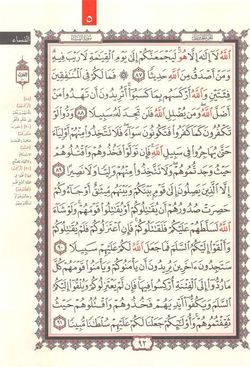 ٥
النساء
ٱللَّهُ لَآ إِلَٰهَ إِلَّا هُوَ لَيَجْمَعَنَّكُمْ إِلَىٰ يَوْمِ ٱلْقِيَٰمَةِ لَا رَيْبَ فِيهِ
وَمَنْ أَصْدَقُ مِنَ ٱللَّهِ حَدِيثًا ٨٧ فَمَا لَكُمْ فِى ٱلْمُنَٰفِقِينَ
فِئَتَيْنِ وَٱللَّهُ أَرْكَسَهُم بِمَا كَسَبُوٓا۟ أَتُرِيدُونَ أَن تَهْدُوا۟ مَنْ
أَضَلَّ ٱللَّهُ وَمَن يُضْلِلِ ٱللَّهُ فَلَن تَجِدَ لَهُۥ سَبِيلًا ٨٨ وَدُّوا۟ لَوْ
تَكْفُرُونَ كَمَا كَفَرُوا۟ فَتَكُونُونَ سَوَآءً فَلَا تَتَّخِذُوا۟ مِنْهُمْ أَوْلِيَآءَ
حَتَّىٰ يُهَاجِرُوا۟ فِى سَبِيلِ ٱللَّهِ فَإِن تَوَلَّوْا۟ فَخُذُوهُمْ وَٱقْتُلُوهُمْ
حَيْثُ وَجَدتُّمُوهُمْ وَلَا تَتَّخِذُوا۟ مِنْهُمْ وَلِيًّا وَلَا نَصِيرًا ٨٩
إِلَّا ٱلَّذِينَ يَصِلُونَ إِلَىٰ قَوْمٍۭ بَيْنَكُمْ وَبَيْنَهُم مِّيثَٰقٌ أَوْ جَآءُوكُمْ
حَصِرَتْ صُدُورُهُمْ أَن يُقَٰتِلُوكُمْ أَوْ يُقَٰتِلُوا۟ قَوْمَهُمْ وَلَوْ شَآءَ
ٱللَّهُ لَسَلَّطَهُمْ عَلَيْكُمْ فَلَقَٰتَلُوكُمْ فَإِنِ ٱعْتَزَلُوكُمْ فَلَمْ يُقَٰتِلُوكُمْ
وَأَلْقَوْا۟ إِلَيْكُمُ ٱلسَّلَمَ فَمَا جَعَلَ ٱللَّهُ لَكُمْ عَلَيْهِمْ سَبِيلًا ٩٠
سَتَجِدُونَ ءَاخَرِينَ يُرِيدُونَ أَن يَأْمَنُوكُمْ وَيَأْمَنُوا۟ قَوْمَهُمْ كُلَّ
مَا رُدُّوٓا۟ إِلَى ٱلْفِتْنَةِ أُرْكِسُوا۟ فِيهَا فَإِن لَّمْ يَعْتَزِلُوكُمْ وَيُلْقُوٓا۟ إِلَيْكُمُ
ٱلسَّلَمَ وَيَكُفُّوٓا۟ أَيْدِيَهُمْ فَخُذُوهُمْ وَٱقْتُلُوهُمْ حَيْثُ
ثَقِفْتُمُوهُمْ وَأُو۟لَٰٓئِكُمْ جَعَلْنَا لَكُمْ عَلَيْهِمْ سُلْطَٰنًا مُّبِينًا ٩١
٩٢